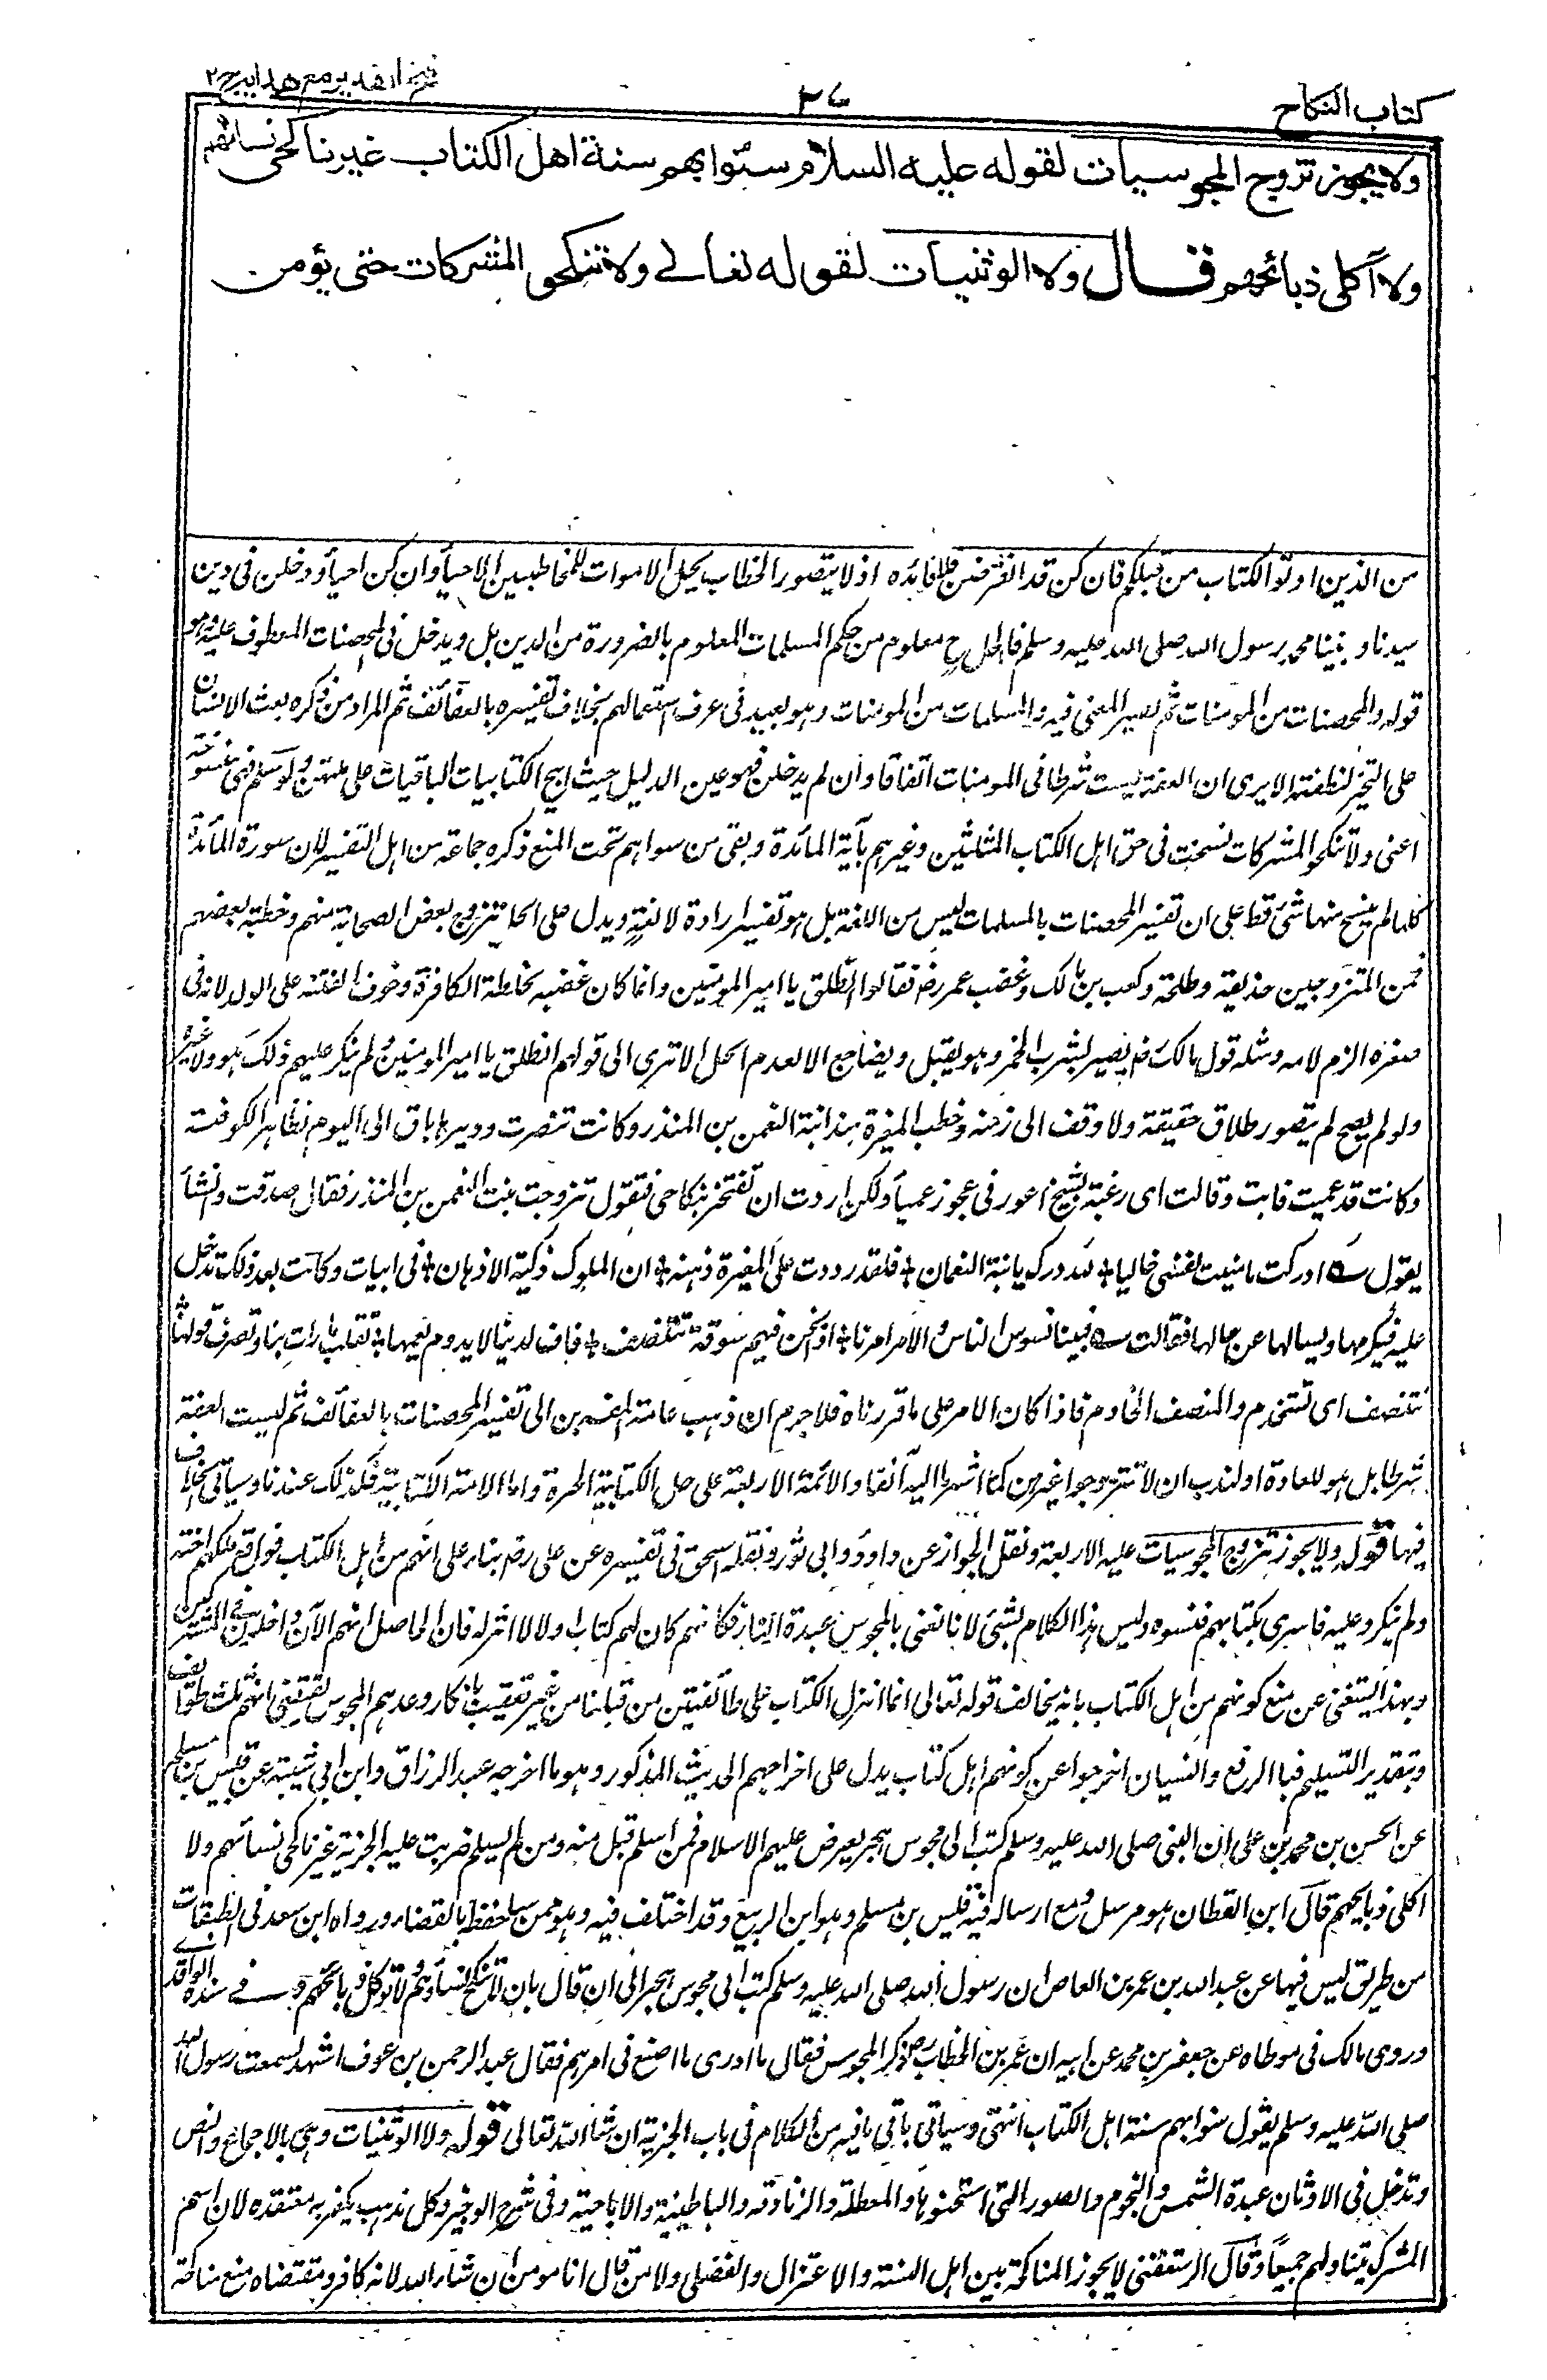 كتاب النكاح
٣٧
فتح القدير مع هدايه ج ٢
ولا يجوز تزوج المجوسيات لقوله عليه السلام سنوا بهم سنة اهل الكتاب غير ناكحى نسائهم
ولا آكلى ذبائحهم قال ولا الوثنيات لقوله تعالے ولا تنكحوا المشركات حتى يؤمن
من الذين اوتوا الكتاب من قبلكم فان كن قد انقرضن فلا فائده اذ لا يتصور الخطاب بحل الاموات للمخاطبين الاحيأ وان كن احيأ ودخلن فى دين
سيدنا ونبينا محمد رسول الله صلى الله عليه وسلم فالحل ح معلوم من حكم المسلمات المعلوم بالضرورة من الدين بل ويدخل فى المحصنات المعطوف عليه وهو
قوله والمحصنات من المومنات ثم يصير المعنى فيه والمسلمات من المومنات وهو بعيد فى عرف استعمالهم بخلاف تفسيره بالعفائف ثم المراد من ذكره بعث الانسان
على التخير لنطفته الا يرى ان العفة ليست شرطا فى المومنات اتفاقا وان لم يدخلن فهو عين الدليل حيث ابيح الكتابيات الباقيات على ملتهن ولو سلم فهى منسوخة
اعنى ولا تنكحوا المشركات نسخت فى حق اهل الكتاب المثلثين وغيرهم بآية المائدة وبقى من سواهم تحت المنع ذكره جماعة من اهل التفسير لان سورة المائدة
كلها لم ينسخ منها شئ قط على ان تفسير المحصنات بالمسلمات ليس من اللغة بل هو تفسير ارادة لا لغة ويدل على الحل تزوج بعض الصحابة منهم وخطبة بعضهم
فمن المتزوجين حذيفة وطلحة وكعب بن مالك وغضب عمر رض فقالوا انطلق يا امير المومنين وانما كان غضبه لخلطة الكافرة وخوف الفتنة على الولد لانه فى
صغره الزم لامه ومثله قول مالك رض يصير يشرب الخمر وهو يقبل ويضاجع الا لعدم الحل الا ترى الى قولهم انطلق يا امير المومنين ولم ينكر عليهم ذلك هو ولا غيره
ولو لم يصح لم يتصور طلاق حقيقة ولا وقف الى زمنه وخطب المغيرة هند ابنة النعمن بن المنذر وكانت تنصرت وديرها باق الى اليوم بظاهر الكوفة
وكانت قد عميت فابت وقالت اى رغبة لشيخ اعور فى عجوز عميأ ولكن اردت ان تفتخر بنكاحى فتقول تزوجت بنت النعمن بن المنذر فقال صدقت وانشأ
يقول ادركت ما منيت نفسى خاليا لله درك يا ابنة النعمان فلقد رددت على المغيرة ذهنه ان الملوك ذكية الاذهان فى ابيات وكانت بعد ذلك تدخل
عليه فيكرمها ويسالها عن حالها فقالت فبينا نسوس الناس والامر امرنا اذا نحن فيهم سوقة نتنصف فاف لدنيا لا يدوم نعيمها تقلب تارات بنا وتصرف قولها
نتنصف اى نستخدم والمنصف الخادم فاذا كان الامر على ما قررناه فلا جرم ان ذهب عامة المفسرين الى تفسير المحصنات بالعفائف ثم ليست العفة
شرطا بل هو للعادة او لندب ان لا تتزوجوا غيرهن كما اشرنا اليه آنفا والائمة الاربعة على حل الكتابية الحرة واما الامة الكتابية فكذلك عندنا وسياتى الخلاف
فيها قوله ولا يجوز تزوج المجوسيات عليه الاربعة ونقل الجواز عن داود وابى ثور ونقله اسحق فى تفسيره عن على رض بناء على انهم من اهل الكتاب فواقع ملكهم اخته
ولم ينكروا عليه فاسرى بكتابهم فنسوه وليس هذا الكلام بشئ لانا نعنى بالمجوس عبدة النار فكونهم كان لهم كتاب اولا لا اثر له فان الحاصل انهم الآن داخلين فى المشركين
وبهذا يستغنى عن منع كونهم من اهل الكتاب بانه يخالف قوله تعالى انما انزل الكتاب على طائفتين من قبلنا من غير تعقيب بانكار وعدهم المجوس يقتضى انهم ثلث طوائف
وبتقدير التسليم فبالرفع والنسيان اخرجوا عن كونهم اهل كتاب يدل على اخراجهم الحديث المذكور وهو ما اخرجه عبد الرزاق وابن ابى شيبة عن قيس بن مسلم
عن الحسن بن محمد بن على ان النبى صلى الله عليه وسلم كتب الى مجوس هجر يعرض عليهم الاسلام فمن اسلم قبل منه ومن لم يسلم ضربت عليه الجزية غير ناكحى نسائهم ولا
اكلى ذبايحهم قال ابن القطان هو مرسل ومع ارساله فيه قيس بن مسلم وهو ابن الربيع وقد اختلف فيه وهو ممن ساء حفظه بالقضاء ورواه ابن سعد فى الطبقات
من طريق ليس فيها عن عبد الله بن عمر بن العاص ان رسول الله صلى الله عليه وسلم كتب الى مجوس هجر الى ان قال بان لا تنكح نساؤهم ولا تؤكل ذبائحهم وفے سنده الواقدى
وروى مالك فى موطاه عن جعفر بن محمد عن ابيه ان عمر بن الخطاب رض ذكر المجوس فقال ما ادرى ما اصنع فى امرهم فقال عبد الرحمن بن عوف اشهد لسمعت رسول الله
صلى الله عليه وسلم يقول سنوا بهم سنة اهل الكتاب انتهى وسياتى باقى ما فيه من الكلام فى باب الجزية ان شاء الله تعالى قوله ولا الوثنيات وهى بالاجماع والنص
وتدخل فى الاوثان عبدة الشمس والنجوم والصور التى استحسنوها والمعطلة والزنادقه والباطينية والاباحية وفى شرح الوجيز وكل مذهب يكفر به معتقده لان اسم
المشرك يتناولهم جميعاً وقال الرستغفنى لا يجوز المناكحة بين اهل السنة والاعتزال والفضلى ولا من قال انا مومن ان شاء الله لانه كافر ومقتضاه منع مناكحة